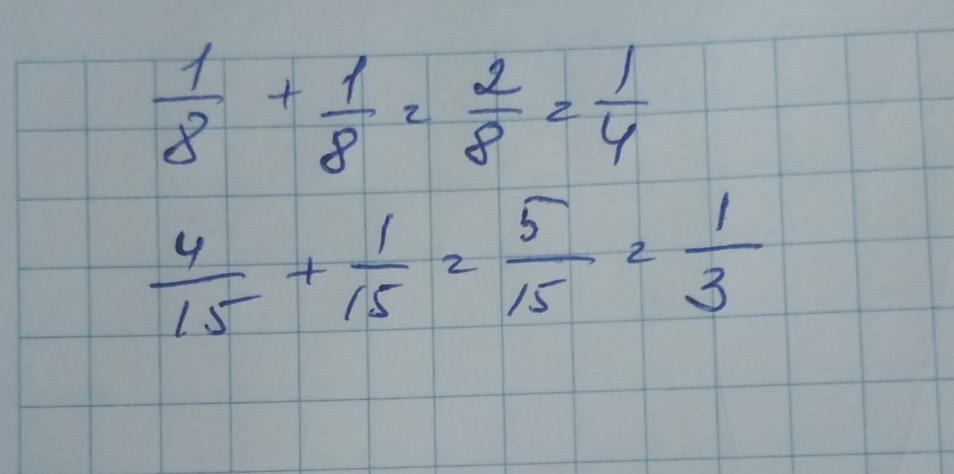 1/8 + 1/8 = 2/8 = 1/4
4/15 + 1/15 = 5/15 = 1/3